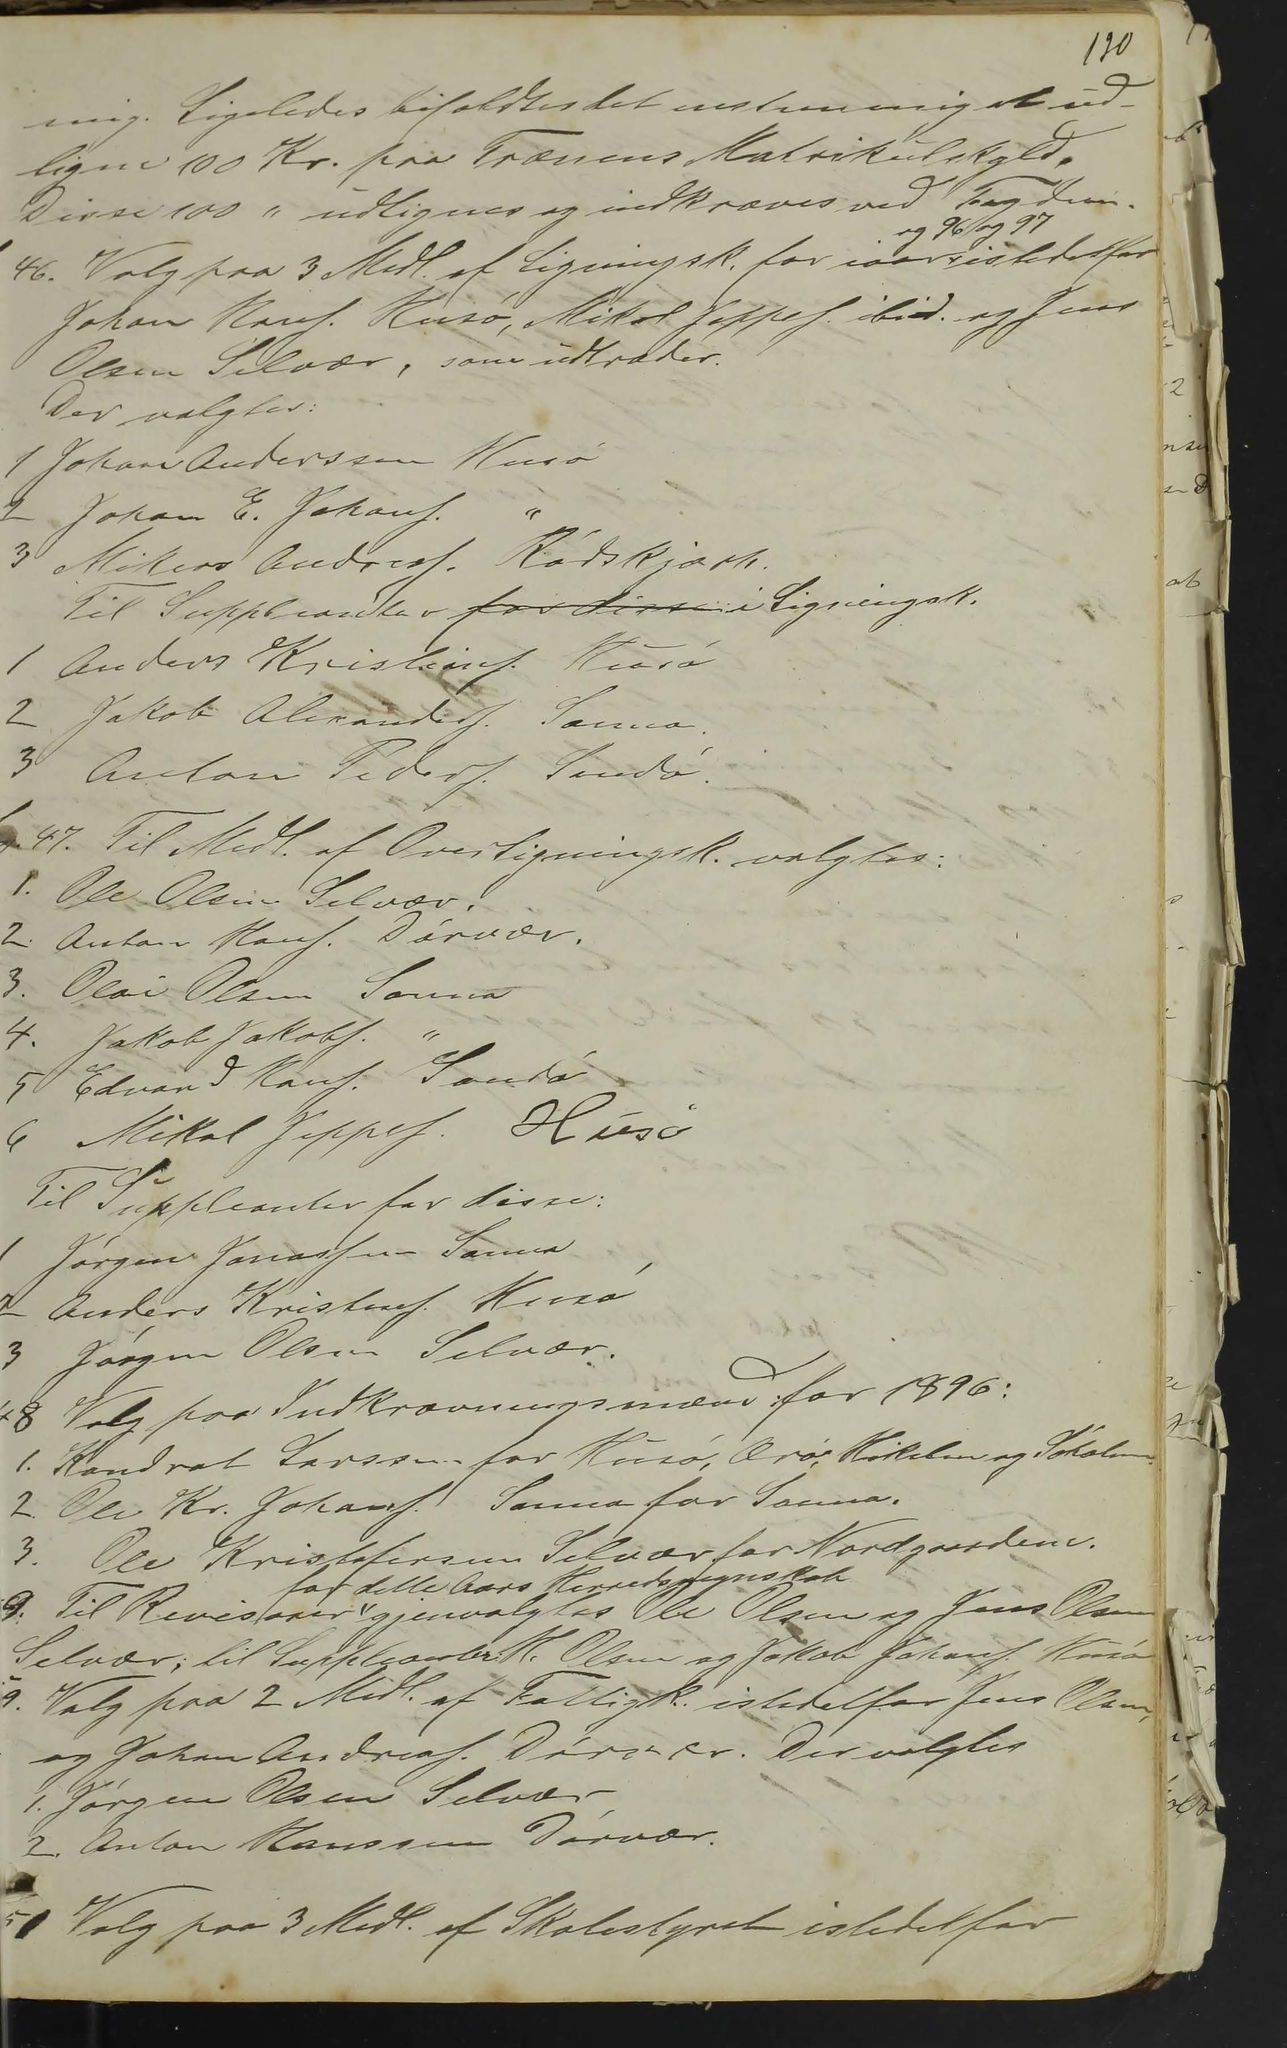 190
ning. Ligeledes bifaldtes det enstemmig at ud-
ligne 100 Kr. paa Trænens Matrikulskyld.
Disse 100 " udlignes og indkræves ved Fogden.
og 96 og 97
46. Valg paa 3 Medl. af Ligningsk. for iaar istedetfor
Johan Hanss. Husö, Mikal Jeppes. ibid. og Jens
Olsen Selvær, som udtræder.
Der valgtes:
1 Johan Anderssen Husö
2 Johan E. Johans. "
3 Mikers Andreas. Rödskjær.
Til Suppleanter for disse i Ligningsk.
1 Anders Kristians. Husö
2 Jakob Alexanders. Sanna.
3 Anton Peders. Sandö.
47. Til Medl. af Overligningsk. valgtes:
1. Ole Olsen Selvær.
2. Anton Hans. Dörvær.
3. Olai Olsen Sanna
4. Jakob Jakobs. "
5 Edvard Hans. Sandö
6 Mikal Jeppes. Husö
Til Suppleanter for disse:
1 Jörgen Jonassen Sanna
2 Anders Kristians. Husö
3 Jörgen Olsen Selvær.
48 Valg paa Indkrævningsmænd for 1896:
1. Kondrat Larssen for Husö, Ærö, og
2. Ole Kr. Johans. Sanna for Sanna.
3. Ole Kristofersen Selvær for Nordgaardene.
for dette Aars Herredsregnskab
9. Til Revisorer gjenvalgtes Ole Olsen og Jens Olsen
Selvær; til Suppleanter: H. Olsen og Jakob Johans. Husö
9. Valg paa 2 Medl. af Fattigk. istedetfor Jens Olsen,
og Johan Andreas. Dörvær. Der valgtes
1. Jörgen Olsen Selvær
2. Anton Hanssen Dörvær.
51 Valg paa 3 Medl. af Skolestyret istedetfor